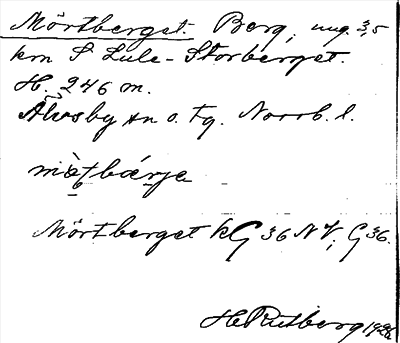 Mörtberget. Berg, ung. 3,5
km S Lule-Storberget.
H. 246 m.
Älvsby sn o. tg. Norrb. l.
mòtbárje
Mörtberget kG 36 NV; G 36.
H Rutberg 1928